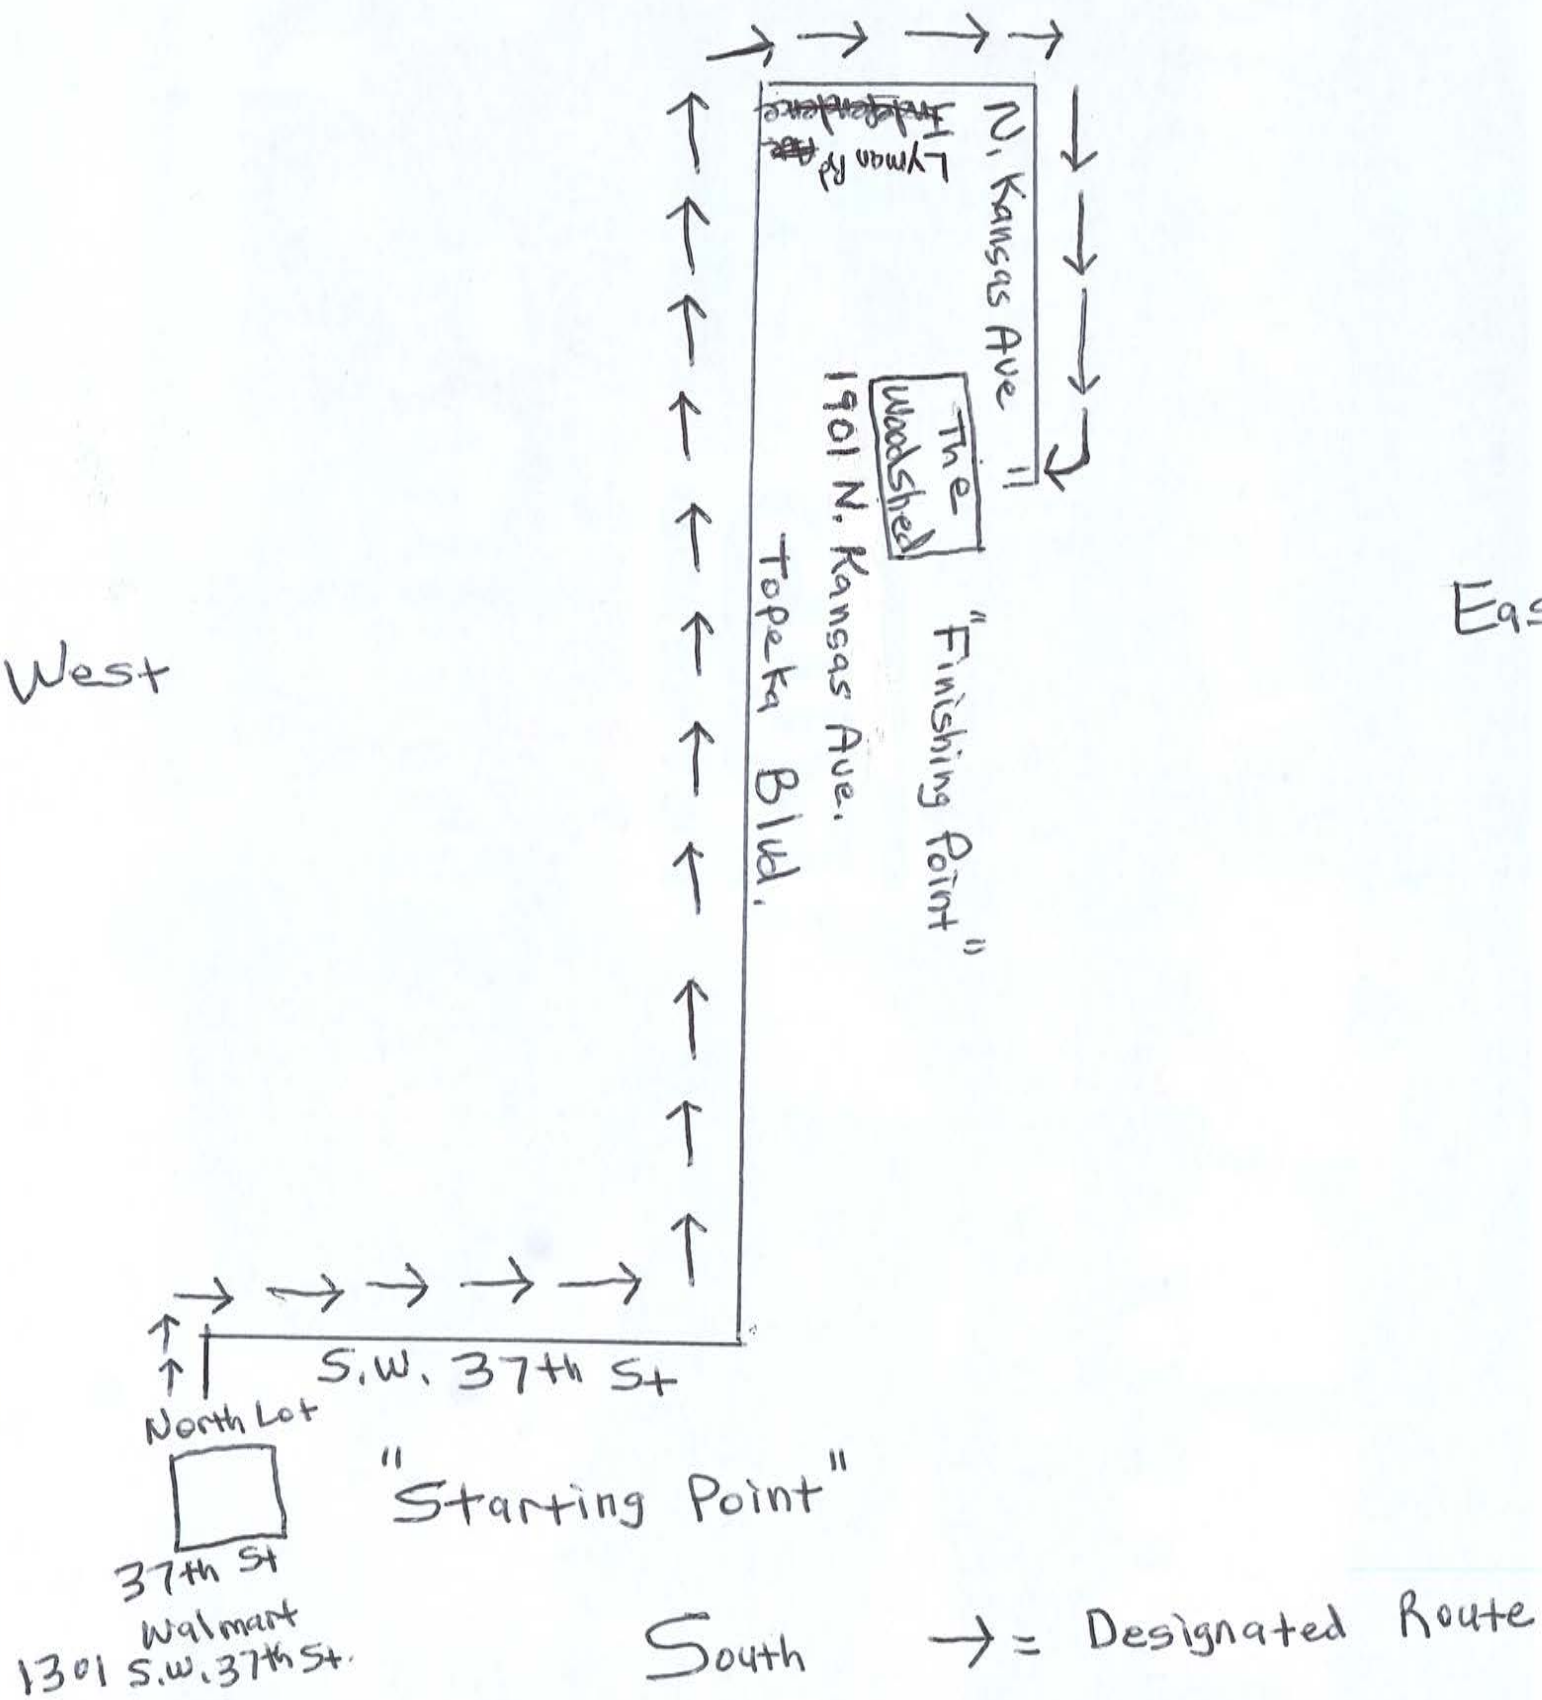 Independence
Lyman Rd
N. Kansas Ave
The
Woodshed
1901 N. Kansas Ave.
"Finishing Point"
Topeka Blvd.
West
Eas
S.W. 37th St
North Lot
"Starting Point"
37th St
Walmart
1301 S.W. 37th St.
South
→ = Designated Route